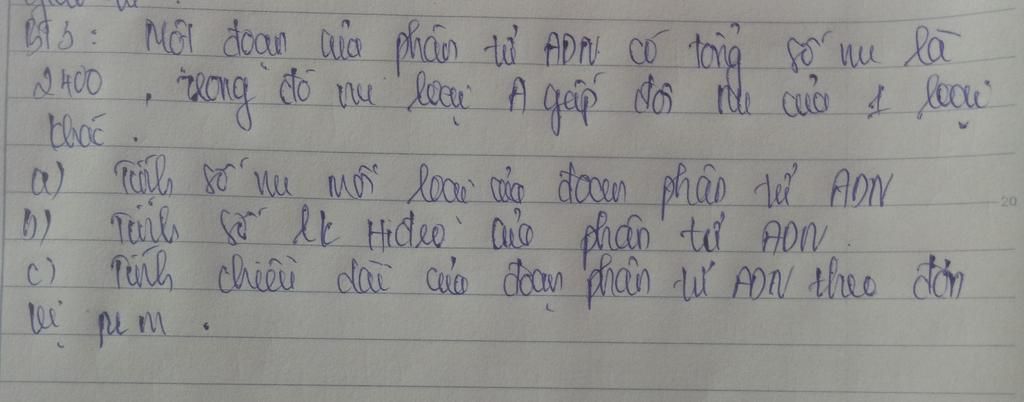 BT5: Một đoạn của phân tử ADN có tổng số nu là
2400, trong đó nu loại A gấp đôi nu của 1 loại
khác.
a) Tính số nu mỗi loại của đoạn phân tử ADN
b) Tính số lk Hiđro của phân tử ADN.
c) Tính chiều dài của đoạn phân tử ADN theo đơn
vị µm.
20